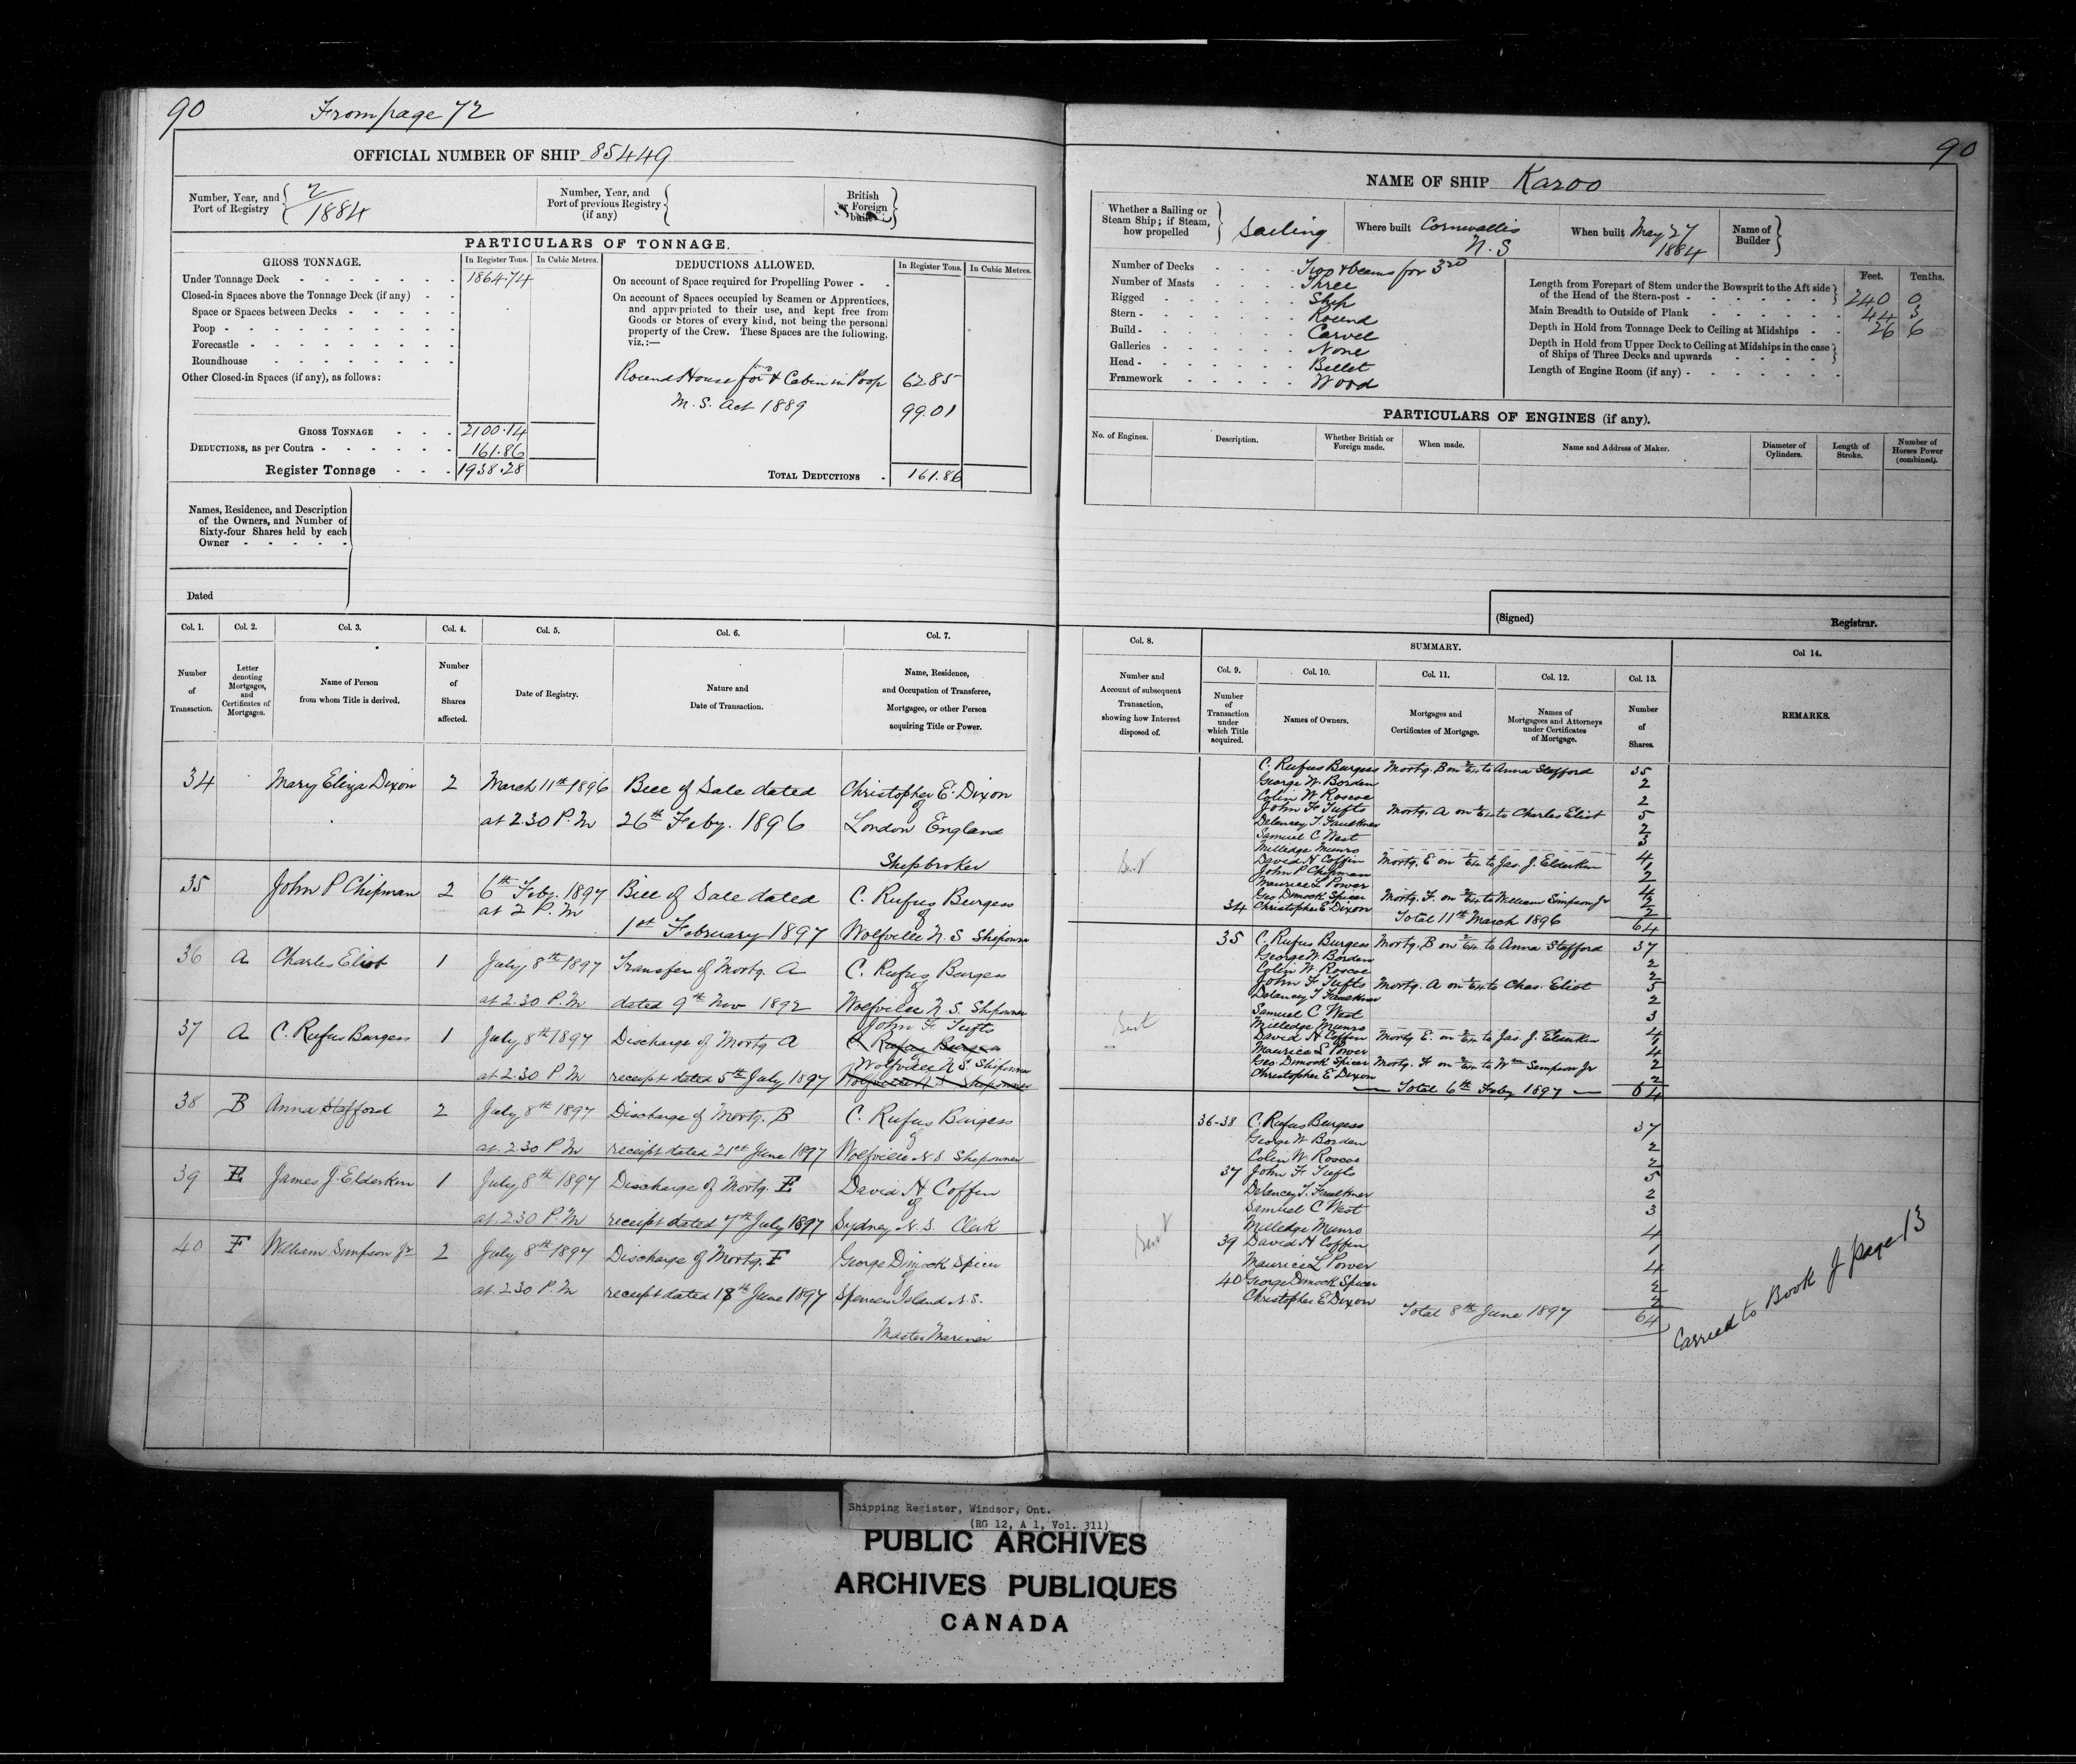 90
From page 72
OFFICIAL NUMBER OF SHIP 85449
Number, Year, and Port of Registry 2/1884
Number, Year, and Port of previous Registry (if any)
British or Foreign built
PARTICULARS OF TONNAGE.
GROSS TONNAGE.
In Register Tons.
In Cubic Metres.
Under Tonnage Deck 1864.74
Closed-in Spaces above the Tonnage Deck (if any)
Space or Spaces between Decks
Poop
Forecastle
Roundhouse
Other Closed-in Spaces (if any), as follows:
GROSS TONNAGE 2100.14
DEDUCTIONS, as per Contra 161.86
Register Tonnage 1938.28
DEDUCTIONS ALLOWED.
In Register Tons.
In Cubic Metres.
On account of Space required for Propelling Power
On account of Spaces occupied by Seamen or Apprentices,
and appropriated to their use, and kept free from
Goods or Stores of every kind, not being the personal
property of the Crew. These Spaces are the following,
viz.:—
Round House for & Cabin in Poop 62.85
M. S. Act 1889 99.01
TOTAL DEDUCTIONS 161.86
Names, Residence, and Description
of the Owners, and Number of
Sixty-four Shares held by each
Owner
Dated
Col. 1. Number of Transaction.
Col. 2. Letter denoting Mortgages, and Certificates of Mortgages.
Col. 3. Name of Person from whom Title is derived.
Col. 4. Number of Shares affected.
Col. 5. Date of Registry.
Col. 6. Nature and Date of Transaction.
Col. 7. Name, Residence, and Occupation of Transferee, Mortgagee, or other Person acquiring Title or Power.
34 Mary Eliza Dixon 2 March 11th 1896 Bill of Sale dated Christopher E. Dixon
of
at 2.30 P.M 26th Feby. 1896 London England
Shipbroker
35 John P Chipman 2 6th Feby. 1897 Bill of Sale dated C. Rufus Burgess
at 2 P.M of
1st February 1897 Wolfville N.S Shipowner
36 A Charles Eliot 1 July 8th 1897 Transfer of Mortg. A C. Rufus Burgess
of
at 2.30 P.M dated 9th Nov 1892 Wolfville N.S. Shipowner
John F Tufts
37 A C. Rufus Burgess 1 July 8th 1897 Discharge of Mortg A C Rufus Burgess
Wolfville N S. Shipowner
at 2.30 P.M receipt dated 5th July 1897 Wolfville N.S Shipowner
38 B Anna Stafford 2 July 8th 1897 Discharge of Mortg. B C. Rufus Burgess
of
at 2.30 P.M receipt dated 21st June 1897 Wolfville N.S Shipowner
39 E James J. Elderkin 1 July 8th 1897 Discharge of Mortg. E David H Coffin
of
at 2.30 P.M receipt dated 7th July 1897 Sydney N.S. Clerk
40 F William Simpson Jr 2 July 8th 1897 Discharge of Mortg. F George Dimock Spicer
of
at 2.30 P.M receipt dated 18th June 1897 Spencers Island N.S.
Master Mariner
90
NAME OF SHIP Karoo
Whether a Sailing or Steam Ship; if Steam, how propelled Sailing
Where built Cornwallis N.S
When built May 27 1884
Name of Builder
Number of Decks Two & beams for 3rd
Number of Masts Three
Rigged Ship
Stern Round
Build Carvel
Galleries None
Head Billet
Framework Wood
Feet. Tenths.
Length from Forepart of Stem under the Bowsprit to the Aft side of the Head of the Stern-post 240 0
Main Breadth to Outside of Plank 44 3
Depth in Hold from Tonnage Deck to Ceiling at Midships 26 6
Depth in Hold from Upper Deck to Ceiling at Midships in the case of Ships of Three Decks and upwards
Length of Engine Room (if any)
PARTICULARS OF ENGINES (if any).
No. of Engines.
Description.
Whether British or Foreign made.
When made.
Name and Address of Maker.
Diameter of Cylinders.
Length of Stroke.
Number of Horses Power (combined).
(Signed)
Registrar.
Col. 8. Number and Account of subsequent Transaction, showing how Interest disposed of.
SUMMARY.
Col. 9. Number of Transaction under which Title acquired.
Col. 10. Names of Owners.
Col. 11. Mortgages and Certificates of Mortgage.
Col. 12. Names of Mortgagees and Attorneys under Certificates of Mortgage.
Col. 13. Number of Shares.
Col 14. REMARKS.
C. Rufus Burgess Mortg. B on 2/64 to Anna Stafford 35
George W. Borden 2
Colin W Roscoe 2
John F Tufts Mortg. A on 1/64 to Charles Eliot 5
Delancey T. Faulkner 2
Samuel C West 3
Milledge Munro 4
David H Coffin Mortg. E on 1/64 to Jas. J. Elderkin 1
John P Chipman 2
Maurice L Power 4
Geo Dimock Spicer Mortg. F. on 2/64 to William Simpson Jr 2
34 Christopher E Dixon 2
Total 11th March 1896 64
35 C. Rufus Burgess Mortg. B on 2/64 to Anna Stafford 37
George W. Borden 2
Colin W. Roscoe 2
John F Tufts Mortg. A on 1/64 to Chas. Eliot 5
Delancey T Faulkner 2
Samuel C West 3
Milledge Munro 4
David H Coffin Mortg E. on 1/64 to Jas. J. Elderkin 1
Maurice L Power 4
Geo. Dimock Spicer Mortg. F on 2/64 to Wm Simpson Jr 2
Christopher E Dixon 2
Total 6th Feby 1897 64
36-38 C. Rufus Burgess 37
George W Borden 2
Colin W Roscoe 2
37 John F Tufts 5
Delancey T. Faulkner 2
Samuel C West 3
Milledge Munro 4
39 David H Coffin 1
Maurice L Power 4
40 George Dimock Spicer 2
Christopher E Dixon 2
Total 8th June 1897 64
Carried to Book J page 13
Shipping Register, Windsor, Ont.
(RG 12, A 1, Vol. 311)
PUBLIC ARCHIVES
ARCHIVES PUBLIQUES
CANADA